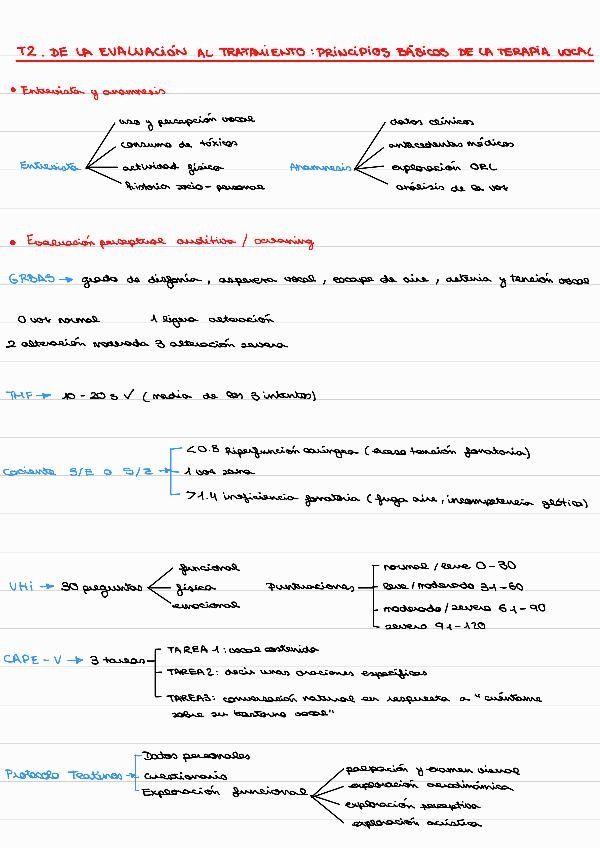 T2. DE LA EVALUACIÓN AL TRATAMIENTO: PRINCIPIOS BÁSICOS DE LA TERAPIA VOCAL
• Entrevista y anamnesis
uso y percepción vocal
consumo de tóxicos
Entrevista
actividad física
historia socio-personal
datos clínicos
antecedentes médicos
Anamnesis
exploración ORL
análisis de la voz
• Evaluación perceptual auditiva / screening
GRBAS → grado de disfonía, aspereza vocal, escape de aire, astenia y tensión vocal
0 voz normal 1 ligera alteración
2 alteración moderada 3 alteración severa
TMF → 10-20 s ✓ (media de los 3 intentos)
Cociente S/E o S/Z →
<0.8 hiperfunción laríngea (exceso tensión fonatoria)
1 voz sana
>1.4 ineficiencia fonatoria (fuga aire, incompetencia glótica)
VHI → 30 preguntas
funcional
física
emocional
Puntuaciones
normal / leve 0-30
leve / moderado 31-60
moderado / severo 61-90
severo 91-120
CAPE-V → 3 tareas
TAREA 1: vocal sostenida
TAREA 2: decir unas oraciones específicas
TAREA 3: conversación natural en respuesta a "cuéntame
sobre su trastorno vocal"
Protocolo Teatinos →
Datos personales
Cuestionario
Exploración funcional
palpación y examen visual
exploración aerodinámica
exploración perceptiva
exploración acústica